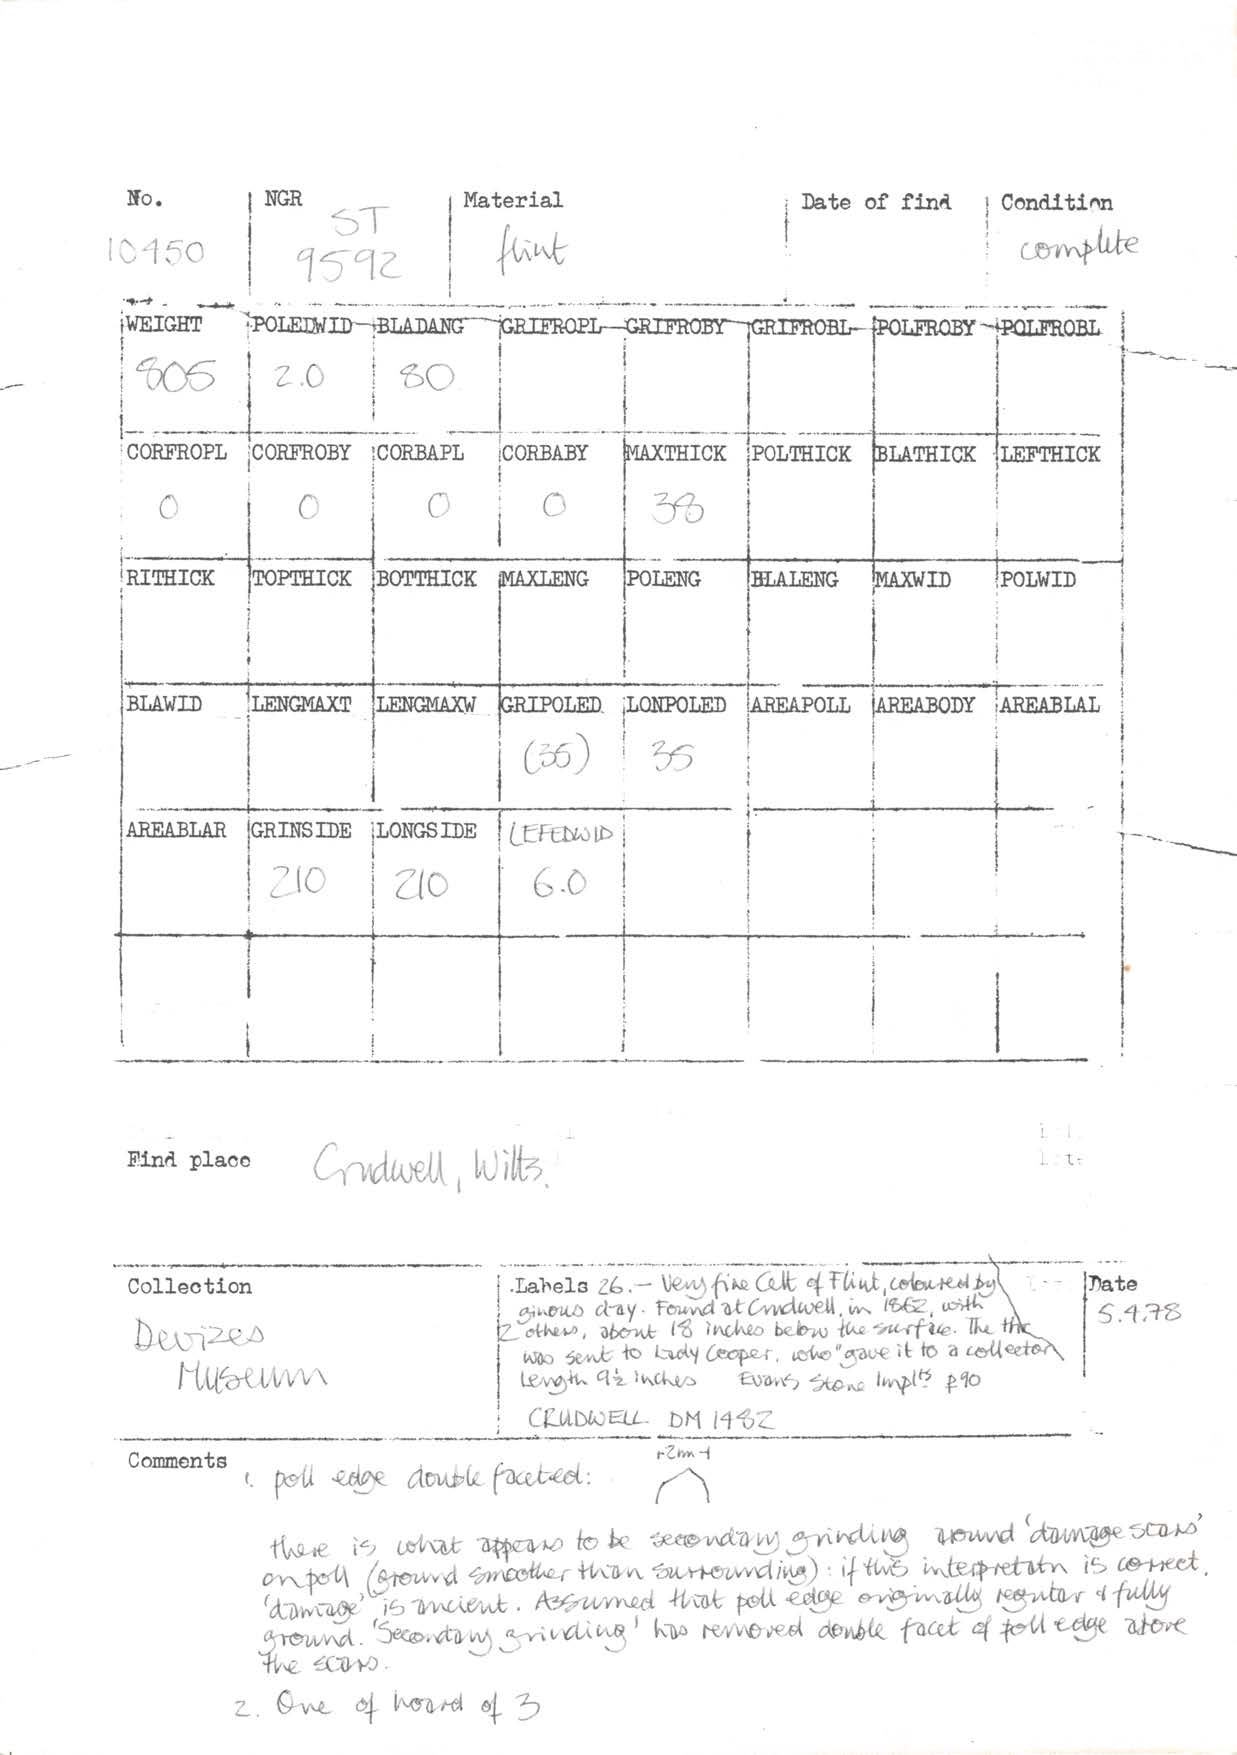 No. NGR Material Date of find Condition
10450 ST 9592 flint complete
WEIGHT POLEDWID BLADANG GRIFROPL GRIFROBY GRIFROBL POLFROBY POLFROBL
805 2.0 80
CORFROPL CORFROBY CORBAPL CORBABY MAXTHICK POLTHICK BLATHICK LEFTHICK
0 0 0 0 38
RITHICK TOPTHICK BOTTHICK MAXLENG POLENG BLALENG MAXWID POLWID
BLAWID LENGMAXT LENGMAXW GRIPOLED LONPOLED AREAPOLL AREABODY AREABLAL
(35) 35
AREABLAR GRINSIDE LONGSIDE LEFEDWID
210 210 6.0
Find place Crudwell, Wilts.
Collection
Devizes
Museum
Labels 26. – Very fine Celt of Flint, coloured by
ginous clay. Found at Crudwell, in 1862, with
2 others, about 18 inches below the surface. The
was sent to Lady Cooper, who "gave it to a collector
Length 9½ inches Evans Stone Implts p90
CRUDWELL DM 1482
Date
5.4.78
Comments
1. poll edge double faceted:
2mm
there is what appears to be secondary grinding around 'damage scars'
on poll (ground smoother than surrounding): if this interpretatn is correct,
'damage' is ancient. Assumed that poll edge originally regular & fully
ground. 'Secondary grinding' has removed double facet of poll edge above
the scars.
2. One of hoard of 3